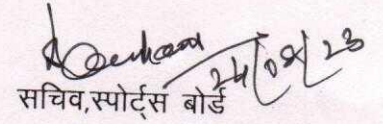 24/08/23
सचिव,स्पोर्ट्स बोर्ड